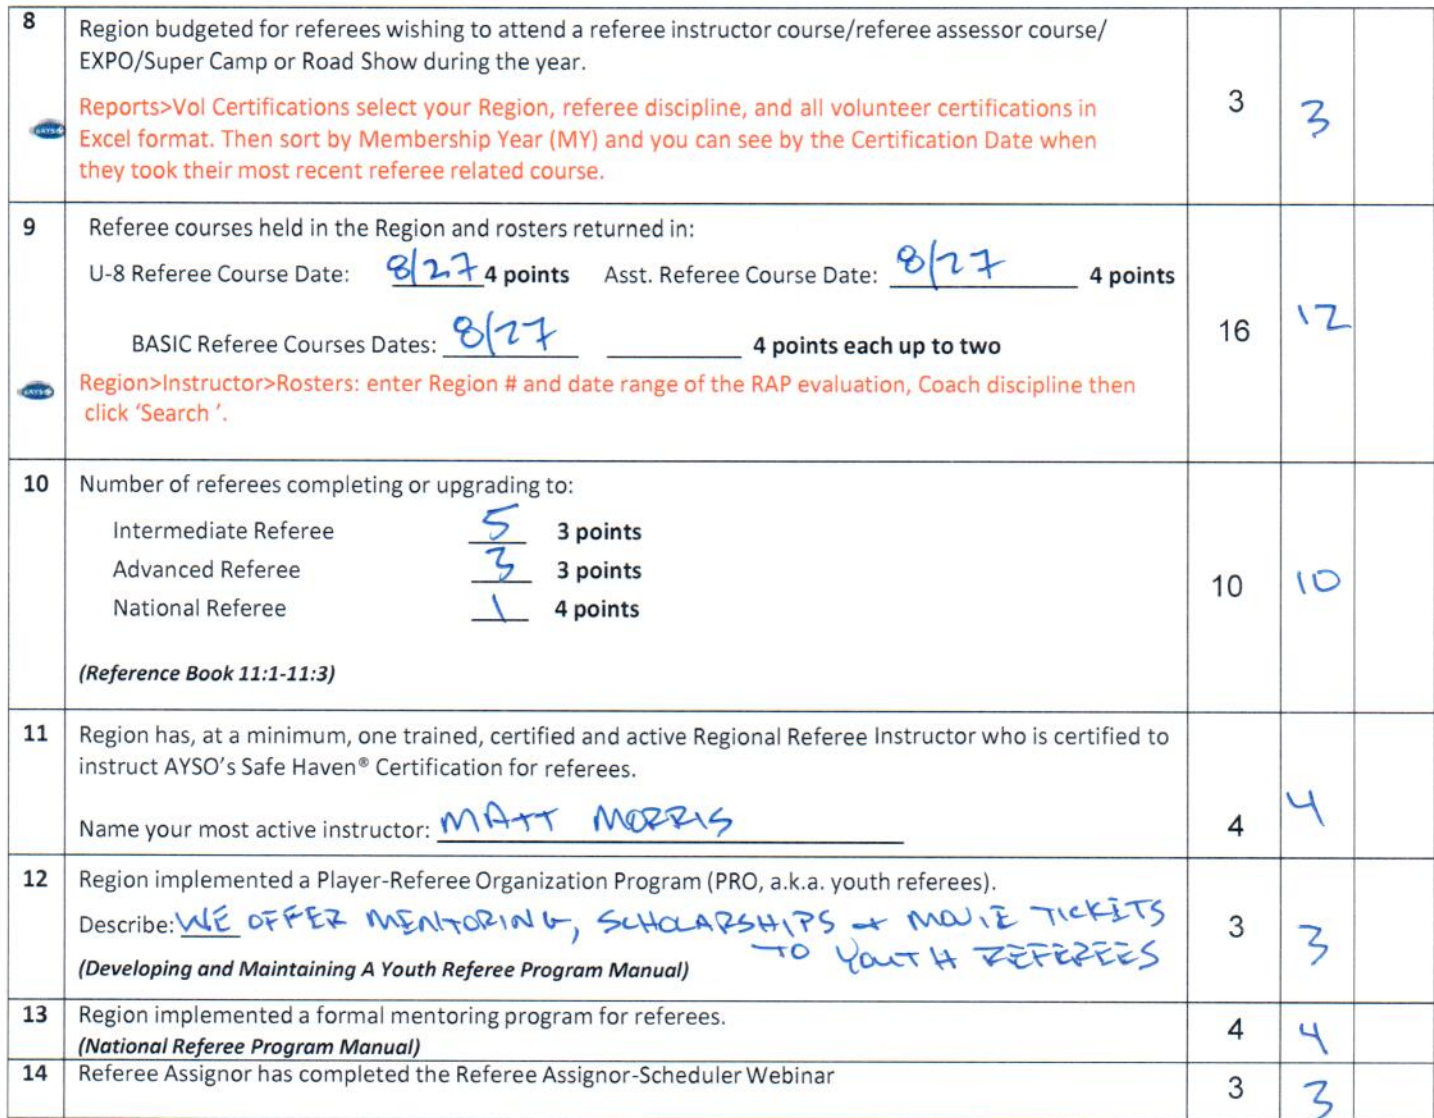 8 Region budgeted for referees wishing to attend a referee instructor course/referee assessor course/
EXPO/Super Camp or Road Show during the year.
Reports>Vol Certifications select your Region, referee discipline, and all volunteer certifications in
Excel format. Then sort by Membership Year (MY) and you can see by the Certification Date when
they took their most recent referee related course.
3 3
9 Referee courses held in the Region and rosters returned in:
U-8 Referee Course Date: 8/27 4 points Asst. Referee Course Date: 8/27 4 points
BASIC Referee Courses Dates: 8/27 4 points each up to two
16 12
Region>Instructor>Rosters: enter Region # and date range of the RAP evaluation, Coach discipline then
click 'Search '.
10 Number of referees completing or upgrading to:
Intermediate Referee 5 3 points
Advanced Referee 3 3 points
National Referee 1 4 points
10 10
(Reference Book 11:1-11:3)
11 Region has, at a minimum, one trained, certified and active Regional Referee Instructor who is certified to
instruct AYSO's Safe Haven® Certification for referees.
Name your most active instructor: MATT MORRIS
4 4
12 Region implemented a Player-Referee Organization Program (PRO, a.k.a. youth referees).
Describe: WE OFFER MENTORING, SCHOLARSHIPS + MOVIE TICKETS
TO YOUTH REFEREES
(Developing and Maintaining A Youth Referee Program Manual)
3 3
13 Region implemented a formal mentoring program for referees.
(National Referee Program Manual)
4 4
14 Referee Assignor has completed the Referee Assignor-Scheduler Webinar
3 3